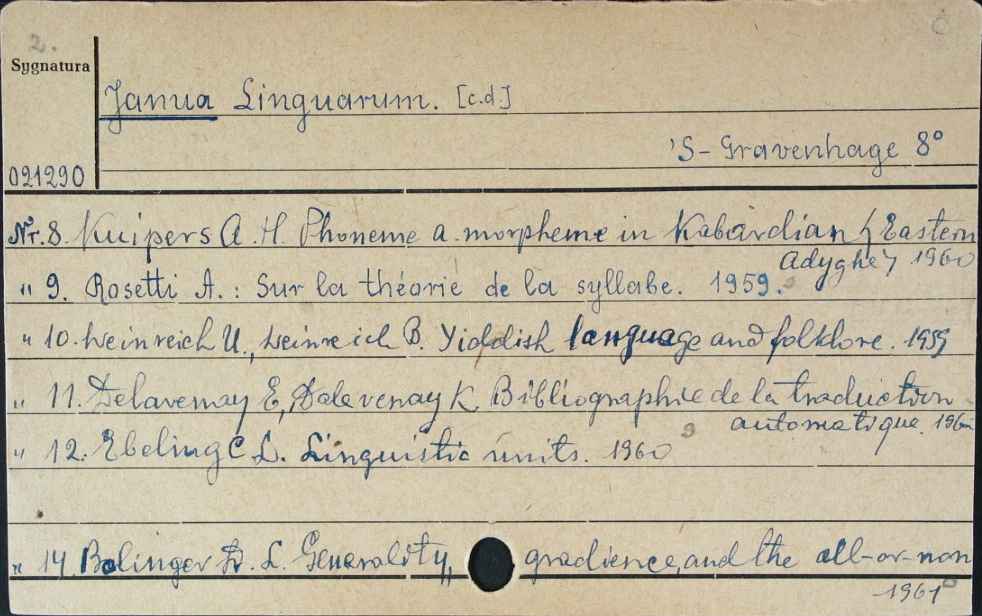 2.
Sygnatura
Janua Linguarum. [c.d.]
'S-Gravenhage 8°
021290
Nr. 8. Kuipers A. H. Phoneme a. morpheme in Kabardian (Eastern
Adyghe) 1960
" 9. Rosetti A.: Sur la théorie de la syllabe. 1959.
" 10. Weinreich U., Weinreich B. Yiddish language and folklore. 1959
" 11. Delavenay E, Delavenay K Bibliographie de la traduction
automatique. 1960
" 12. Ebeling C L. Linguistic units. 1960
" 14. Bolinger D. L. Generality, gradience, and the all-or-non
1961